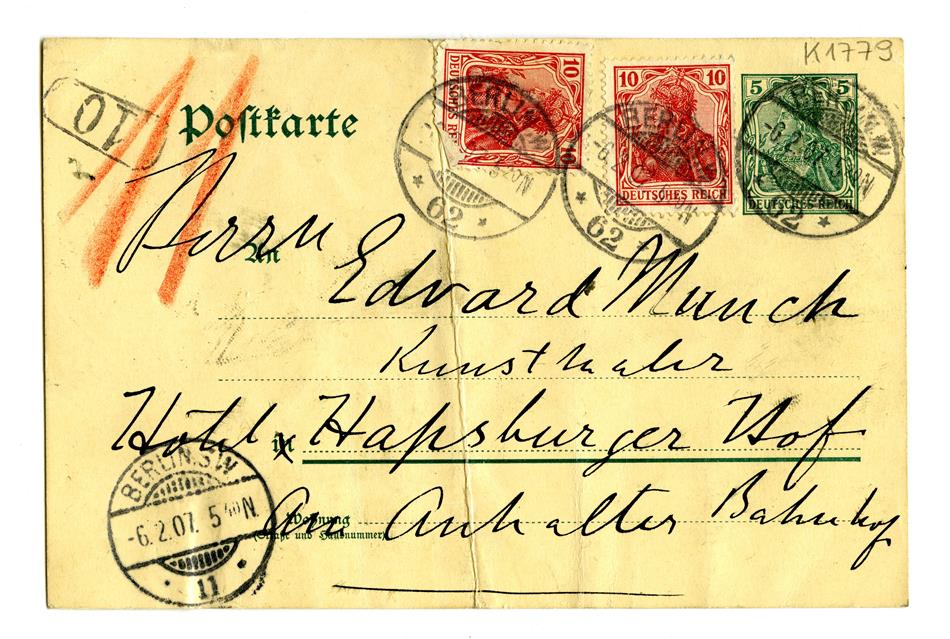 K1779
10
Postkarte
10
DEUTSCHES RE
10
BERLIN
520N
* 62 *
10 10
DEUTSCHES REICH
BERLIN
-6.
* 62 *
5 5
DEUTSCHES REICH
BERLIN W
-6.2.07. 520N
62 *
Herrn
An
Edvard Munch
Kunstmaler
Hôtel in Hapsburger Hof
Wohnung
(Straße und Hausnummer)
Am Anhalter Bahnhof
BERLIN.SW
-6.2.07. 540N.
* 11 *